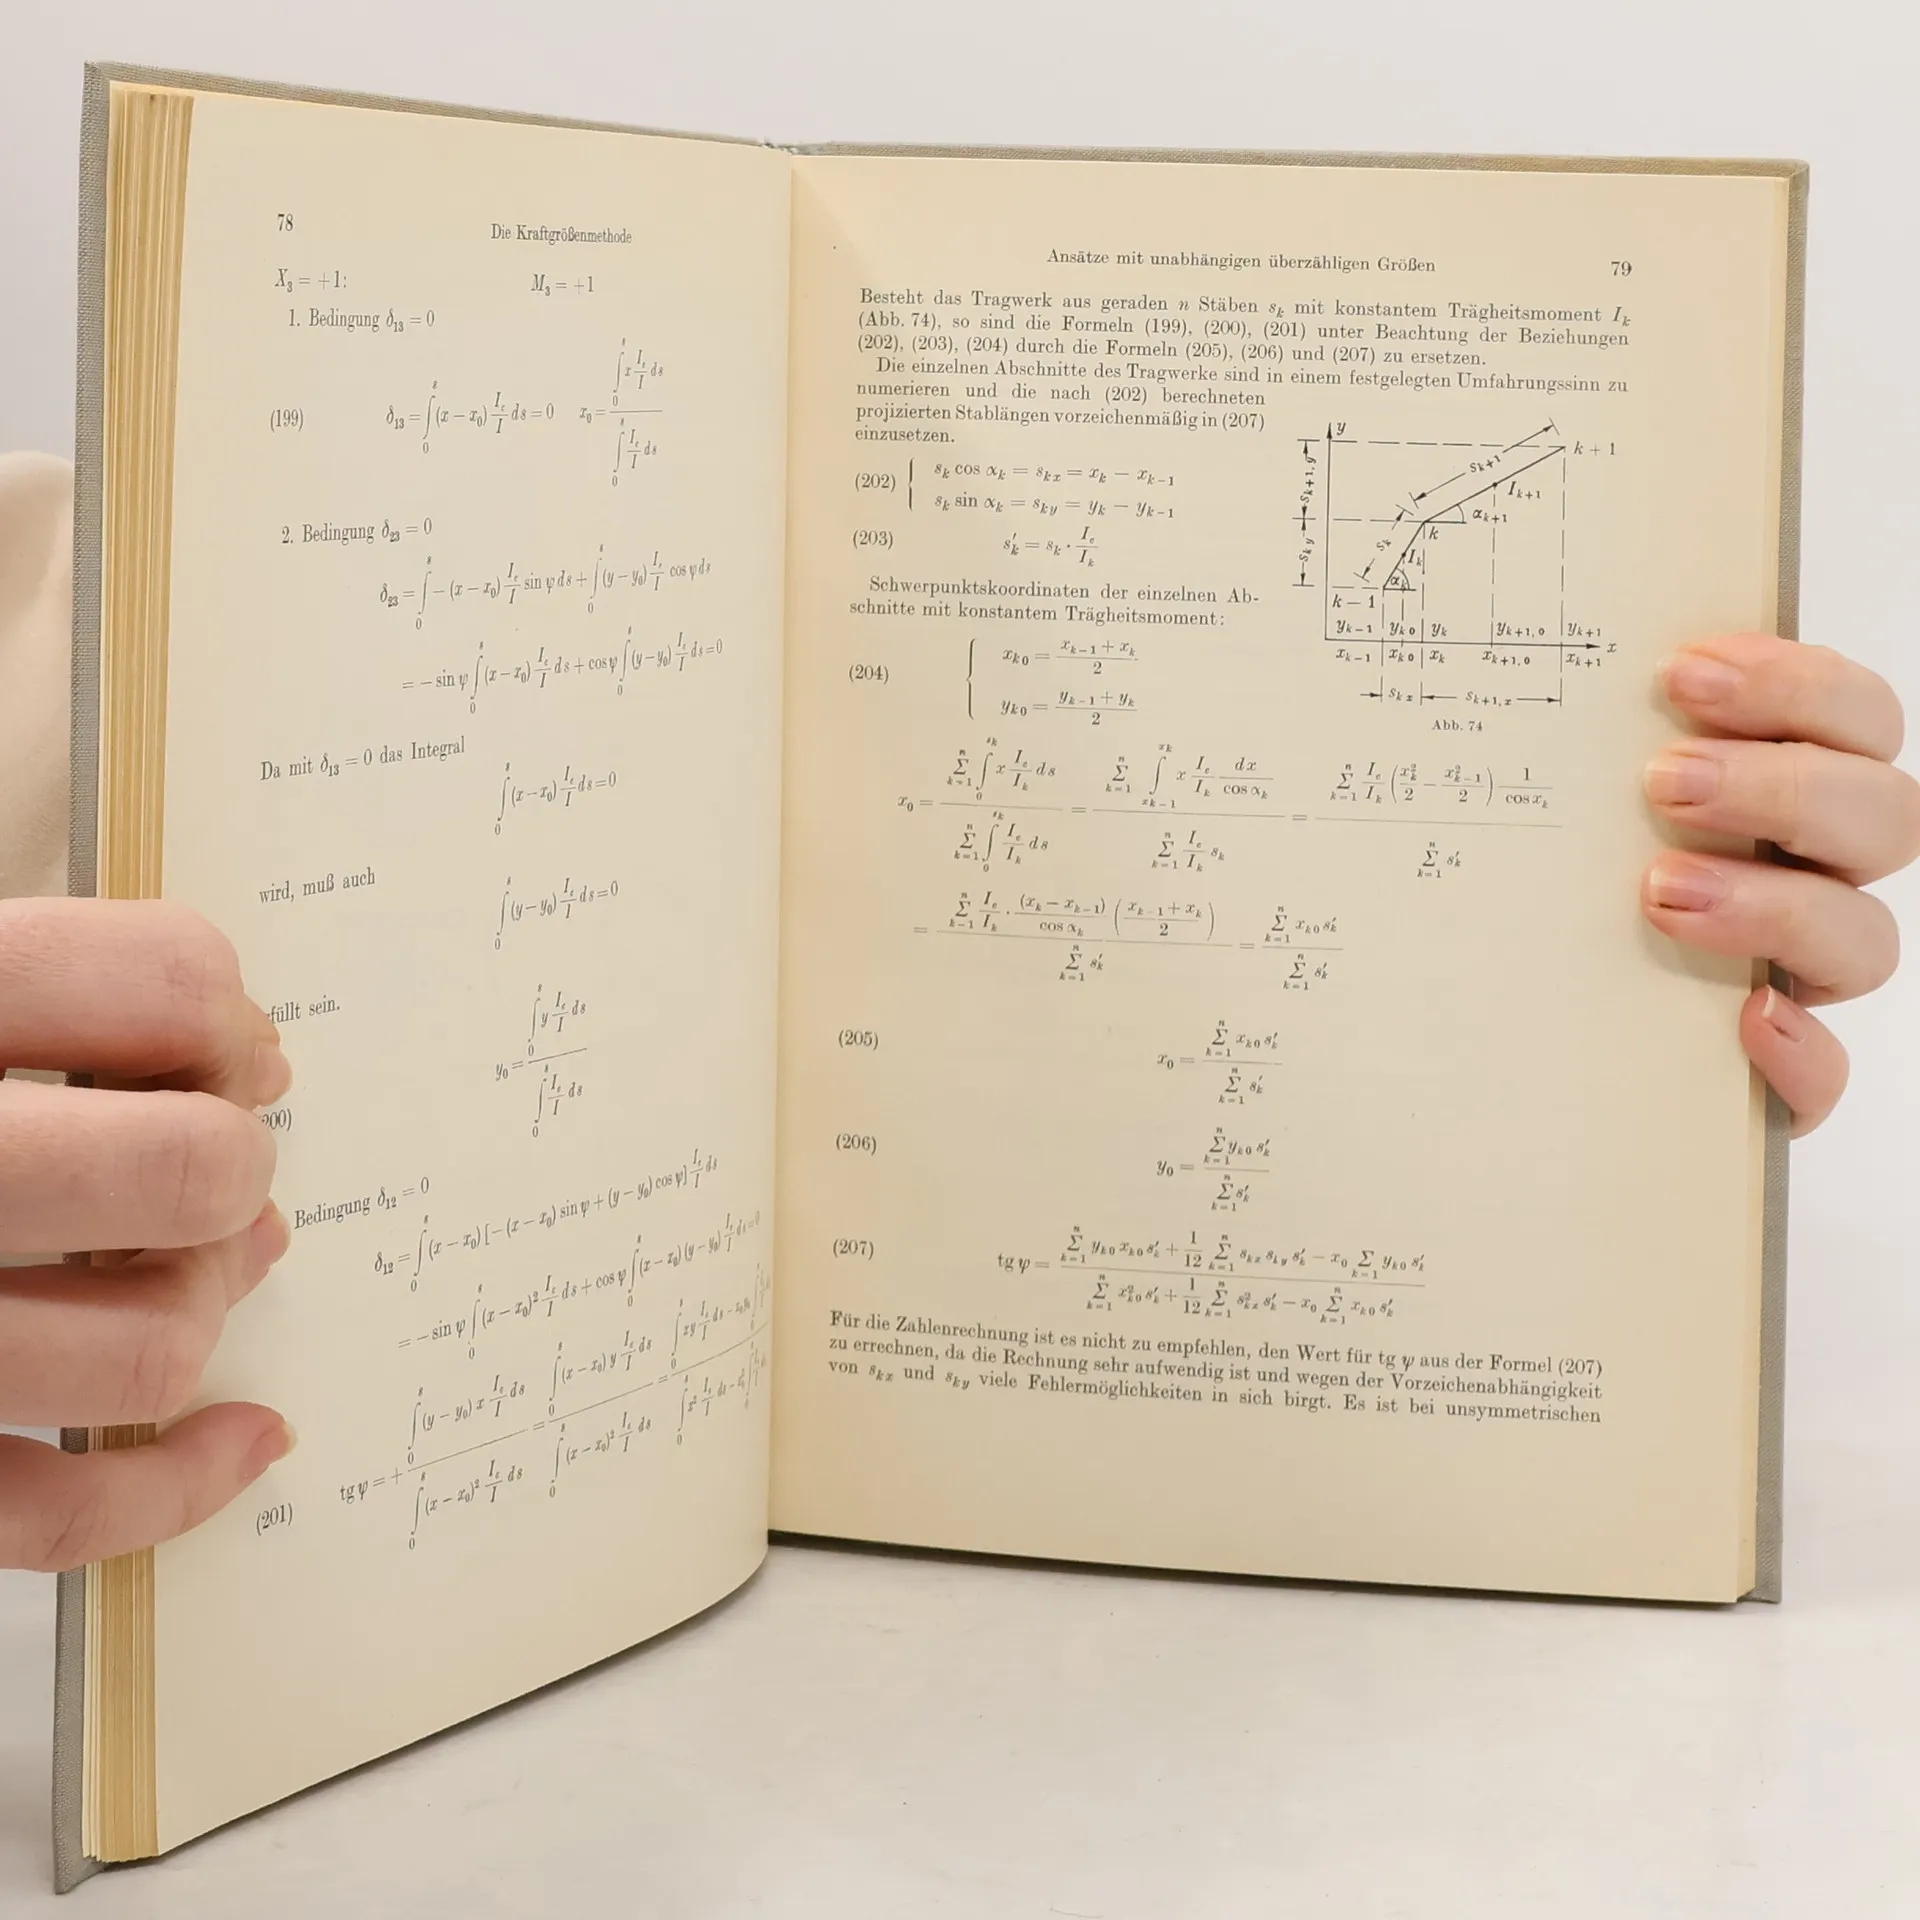 78
Die Kraftgrößenmethode
X₃ = +1: M₃ = +1
1. Bedingung δ₁₃ = 0
(199) δ₁₃ = ∫₀ˢ (x − x₀) I_c/I ds = 0 x₀ = ∫₀ˢ x I_c/I ds / ∫₀ˢ I_c/I ds
2. Bedingung δ₂₃ = 0
δ₂₃ = ∫₀ˢ − (x − x₀) I_c/I sin ψ ds + ∫₀ˢ (y − y₀) I_c/I cos ψ ds
= − sin ψ ∫₀ˢ (x − x₀) I_c/I ds + cos ψ ∫₀ˢ (y − y₀) I_c/I ds = 0
Da mit δ₁₃ = 0 das Integral
∫₀ˢ (x − x₀) I_c/I ds = 0
wird, muß auch
∫₀ˢ (y − y₀) I_c/I ds = 0
füllt sein.
00) y₀ = ∫₀ˢ y I_c/I ds / ∫₀ˢ I_c/I ds
Bedingung δ₁₂ = 0
δ₁₂ = ∫₀ˢ (x − x₀) [− (x − x₀) sin ψ + (y − y₀) cos ψ] I_c/I ds
= − sin ψ ∫₀ˢ (x − x₀)² I_c/I ds + cos ψ ∫₀ˢ (x − x₀) (y − y₀) I_c/I ds = 0
(201) tg ψ = + ∫₀ˢ (y − y₀) x I_c/I ds / ∫₀ˢ (x − x₀)² I_c/I ds = ∫₀ˢ (x − x₀) y I_c/I ds / ∫₀ˢ (x − x₀)² I_c/I ds = ∫₀ˢ xy I_c/I ds − x₀y₀ ∫₀ˢ / ∫₀ˢ x² I_c/I ds − x₀² ∫₀ˢ
Ansätze mit unabhängigen überzähligen Größen
79
Besteht das Tragwerk aus geraden n Stäben s_k mit konstantem Trägheitsmoment I_k
(Abb. 74), so sind die Formeln (199), (200), (201) unter Beachtung der Beziehungen
(202), (203), (204) durch die Formeln (205), (206) und (207) zu ersetzen.
Die einzelnen Abschnitte des Tragwerke sind in einem festgelegten Umfahrungssinn zu
numerieren und die nach (202) berechneten
projizierten Stablängen vorzeichenmäßig in (207)
einzusetzen.
(202) { s_k cos α_k = s_kx = x_k − x_{k−1}
s_k sin α_k = s_ky = y_k − y_{k−1}
(203) s′_k = s_k · I_c/I_k
Schwerpunktskoordinaten der einzelnen Ab-
schnitte mit konstantem Trägheitsmoment:
(204) { x_{k0} = (x_{k−1} + x_k)/2
y_{k0} = (y_{k−1} + y_k)/2
y
k + 1
s_{k+1}
s_{k+1, y}
I_{k+1}
α_{k+1}
k
s_k
s_{ky}
I_k
α_k
k − 1
y_{k−1} y_{k0} y_k y_{k+1, 0} y_{k+1}
x
x_{k−1} x_{k0} x_k x_{k+1, 0} x_{k+1}
s_{kx} s_{k+1, x}
Abb. 74
x₀ = Σ_{k=1}^n ∫₀^{s_k} x I_c/I_k ds / Σ_{k=1}^n ∫₀^{s_k} I_c/I_k ds = Σ_{k=1}^n ∫_{x_{k−1}}^{x_k} x I_c/I_k dx/cos α_k / Σ_{k=1}^n I_c/I_k s_k = Σ_{k=1}^n I_c/I_k (x_k²/2 − x²_{k−1}/2) 1/cos α_k / Σ_{k=1}^n s′_k
= Σ_{k=1}^n I_c/I_k · (x_k − x_{k−1})/cos α_k ((x_{k−1} + x_k)/2) / Σ_{k=1}^n s′_k = Σ_{k=1}^n x_{k0} s′_k / Σ_{k=1}^n s′_k
(205) x₀ = Σ_{k=1}^n x_{k0} s′_k / Σ_{k=1}^n s′_k
(206) y₀ = Σ_{k=1}^n y_{k0} s′_k / Σ_{k=1}^n s′_k
(207) tg ψ = Σ_{k=1}^n y_{k0} x_{k0} s′_k + 1/12 Σ_{k=1}^n s_{kx} s_{ky} s′_k − x₀ Σ_{k=1}^n y_{k0} s′_k / Σ_{k=1}^n x²_{k0} s′_k + 1/12 Σ_{k=1}^n s²_{kx} s′_k − x₀ Σ_{k=1}^n x_{k0} s′_k
Für die Zahlenrechnung ist es nicht zu empfehlen, den Wert für tg ψ aus der Formel (207)
zu errechnen, da die Rechnung sehr aufwendig ist und wegen der Vorzeichenabhängigkeit
von s_{kx} und s_{ky} viele Fehlermöglichkeiten in sich birgt. Es ist bei unsymmetrischen